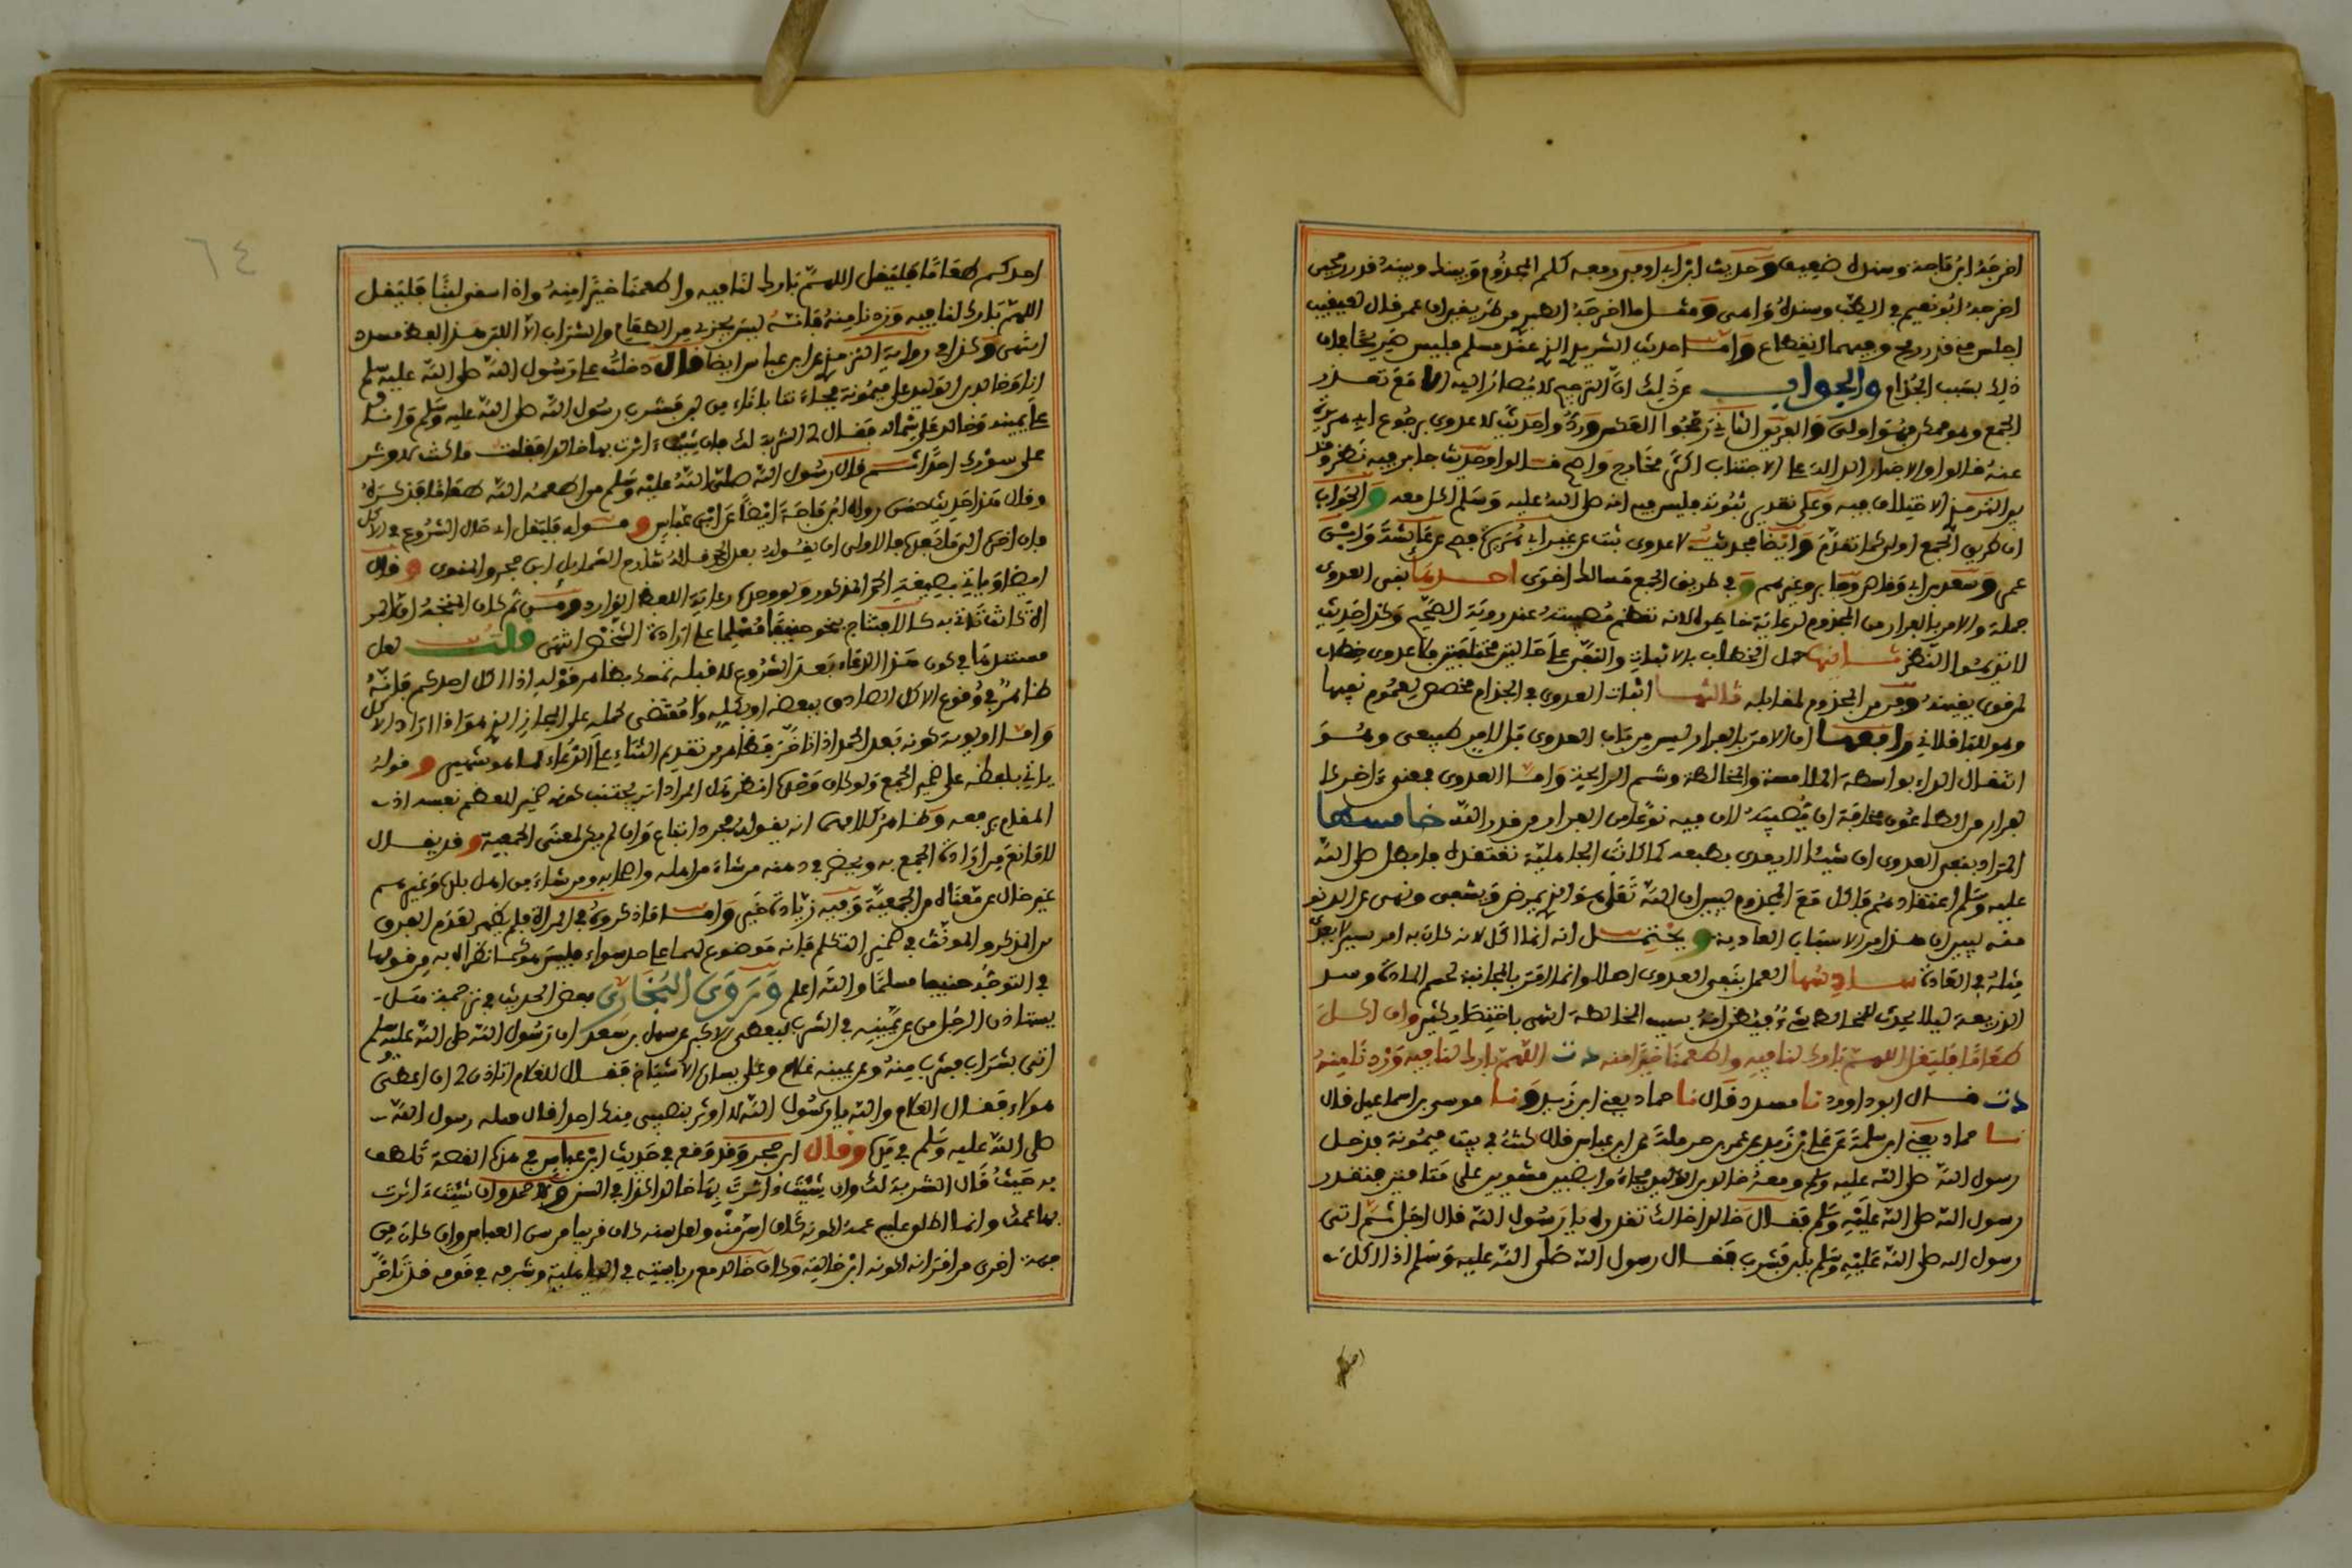 اخرجه ابن ماجه وسنده ضعيف وحديث ابن ابي اوفى رفعه كلم المجذوم وبينك وبينه قدر رمحين
اخرجه ابو نعيم في الطب وسنده واهى ومثل ما اخرجه الطبري من طريق ان عمر قال لمعيقيب
اجلس مني قدر رمح وفيهما انقطاع واما حديث الشريد الذي عند مسلم فليس صريحا في ان
ذلك بسبب الجذام والجواب عن ذلك ان الترجيح لا يصار اليه الا مع تعذر
الجمع وهو ممكن فهو اولى والفريق الثاني رجحوا العكس وردوا حديث لا عدوى برجوع ابي هريرة
عنه قالوا والاخبار الدالة على الاجتناب اكثر مخارج واصح قالوا وحديث جابر فيه نظر وقد
بين الترمذي الاختلاف فيه وعلى تقدير ثبوته فليس فيه انه صلى الله عليه وسلم اكل معه والجواب
ان طريق الجمع اولى كما تقدم وايضا فحديث لا عدوى ثبت عن غير ابي هريرة فصح عن عائشة وابن
عمر وسعد بن ابي وقاص وجابر وغيرهم وفي طريق الجمع مسالك اخرى احدها نفي العدوى
جملة والامر بالفرار من المجذوم لرعاية خاطره لانه تعظم مصيبته عند رؤية الصحيح وكذا حديث
لا تديموا النظر ثانيها حمل الخطاب بالاثبات والنفي على حالتين مختلفتين فلا عدوى خطاب
لمن قوي يقينه وفر من المجذوم لمقابله ثالثها اثبات العدوى في الجذام مخصص لعموم نفيها
وهو للباقلاني رابعها ان الامر بالفرار ليس من باب العدوى بل لامر طبيعى وهو
انتقال الداء بواسطة الملامسة والمخالطة وشم الرايحة واما العدوى فمعنى ءاخر كما
لفرار من الطاعون مخافة ان يصيبه لان فيه نوعا من الفرار من قدر الله خامسها
المراد بنفي العدوى ان شيئا لا يعدى بطبعه كما كانت الجاهلية تعتقده فابطل صلى الله
عليه وسلم اعتقادهم فاكل مع المجذوم ليبين ان الله تعالى هو الذي يمرض ويشفى ونهى عن الدنو
منه ليبين ان هذا من الاسباب العادية ويحتمل انه انما اكل لانه كان به امر يسير لا يعدى
مثله في العادة سادسها العمل بنفي العدوى اصلا وانما الامر بالمجانبة لحسم المادة وسد
الذريعة ليلا يحدث للمخالط شيء فيظن انه بسبب المخالطة انتهى باختصار كثير وان اكل
طعاما فليقل اللهم بارك لنا فيه واطعمنا خيرا منه د ت اللهم بارك لنا فيه وزدنا منه
د ت قال ابو داوود نا مسدد قال نا حماد يعني ابن زيد ونا موسى بن اسماعيل قال
نا حماد يعني ابن سلمة عن علي بن زيد عن عمر بن حرملة عن ابن عباس قال كنت في بيت ميمونة فدخل
رسول الله صلى الله عليه وسلم ومعه خالد بن الوليد فجاءوا بضبين مشويين على ثمامتين فتقذر
رسول الله صلى الله عليه وسلم فقال خالد اخالك تقذره يا رسول الله قال اجل ثم اتى
رسول الله صلى الله عليه وسلم بلبن فشرب فقال رسول الله صلى الله عليه وسلم اذا اكل
احدكم طعاما فليقل اللهم بارك لنا فيه واطعمنا خيرا منه واذا سقى لبنا فليقل
اللهم بارك لنا فيه وزدنا منه فانه ليس يجزي من الطعام والشراب الا اللبن هذا لفظ مسدد
انتهى وكذا في رواية الترمذي عن ابن عباس ايضا قال دخلت على رسول الله صلى الله عليه وسلم
انا وخالد بن الوليد على ميمونة فجاءتنا باناء من لبن فشرب رسول الله صلى الله عليه وسلم وانا
على يمينه وخالد على شماله فقال لي الشربة لك فان شئت ءاثرت بها خالدا فقلت ما كنت لاوثر
على سؤرك احدا ثم قال رسول الله صلى الله عليه وسلم من اطعمه الله طعاما فذكره
وقال هذا حديث حسن رواه ابن ماجه ايضا عن ابن عباس وقوله فليقل اي حال الشروع في الاكل
فان اخره الى ما بعده فالاولى ان يقوله بعد الحمد قاله شارح الشمايل ابن حجر والمناوى وقال
ايضا وياتي بصيغة الحمد المذكور ولو وحده رعاية اللفظ الوارد ومن ثم كان المتجه ان الحر
الانثى تاتي به كالافتتاح بنحو حنيفا مسلما على ارادة الشخص انتهى قلت لعل
مستندهما في كون هذا الدعاء بعد الشروع لا قبله تمسك بظاهر قوله اذا اكل احدكم فانه
ظاهر في وقوع الاكل الصادق ببعضه او بكله ولا مقتضى لحمله على المجاز الذي هو اذا اراد الاكل
واما اولوية كونه بعد الحمد اذا اخر فظاهر من تقديم الثناء على الدعاء وقوله
ياتي بلفظه على ضمير الجمع ولو كان وحده انظر هل المراد انه يجتنب كونه ضمير المعظم نفسه اذ
المقام يدفعه وظاهر كلامهما انه يقوله مجرد اتباع وان لم يكن لمعنى الجمعية وقد يقال
لا مانع من ارادة الجمع به ويحضر في ذهنه من شاء من اهله واصحابه ومن شاء من اهل بلده وغيرهم
غير خال عن معناه من الجمعية وفيه زيادة خير واما ما ذكروه في المراة فلم يظهر لعدم الفرق
بين المذكر والمونث في ضمير التكلم فانه موضوع لهما على حد سواء فليس هو كما نظرا به من قولها
في التوجه حنيفا مسلما والله اعلم وروى البخاري بعض الحديث في ترجمة هل
يستاذن الرجل من عن يمينه في الشرب ليعطي الاكبر عن سهل بن سعد ان رسول الله صلى الله عليه وسلم
اتى بشراب فشرب منه وعن يمينه غلام وعلى يساره الاشياخ فقال للغلام اتاذن لي ان اعطى
هؤلاء فقال الغلام والله يا رسول الله لا اوثر بنصيبى منك احدا قال فتله رسول الله
صلى الله عليه وسلم في يده وقال ابن حجر وقد وقع في حديث ابن عباس في هذه القصة تلطف
به حيث قال الشربة لك وان شئت ءاثرت بها خالدا كذا في السنن ولاحمد وان شئت ءاثرت
بها عمك وانما اطلق عليه عمه لكونه كان اسن منه ولعل سنه كان قريبا من سن العباس وان كان من
جهة اخرى من اقرانه لكونه ابن خالته وكان خالد مع رياسته في الجاهلية وشرفه في قومه قد تاخر
٦٤